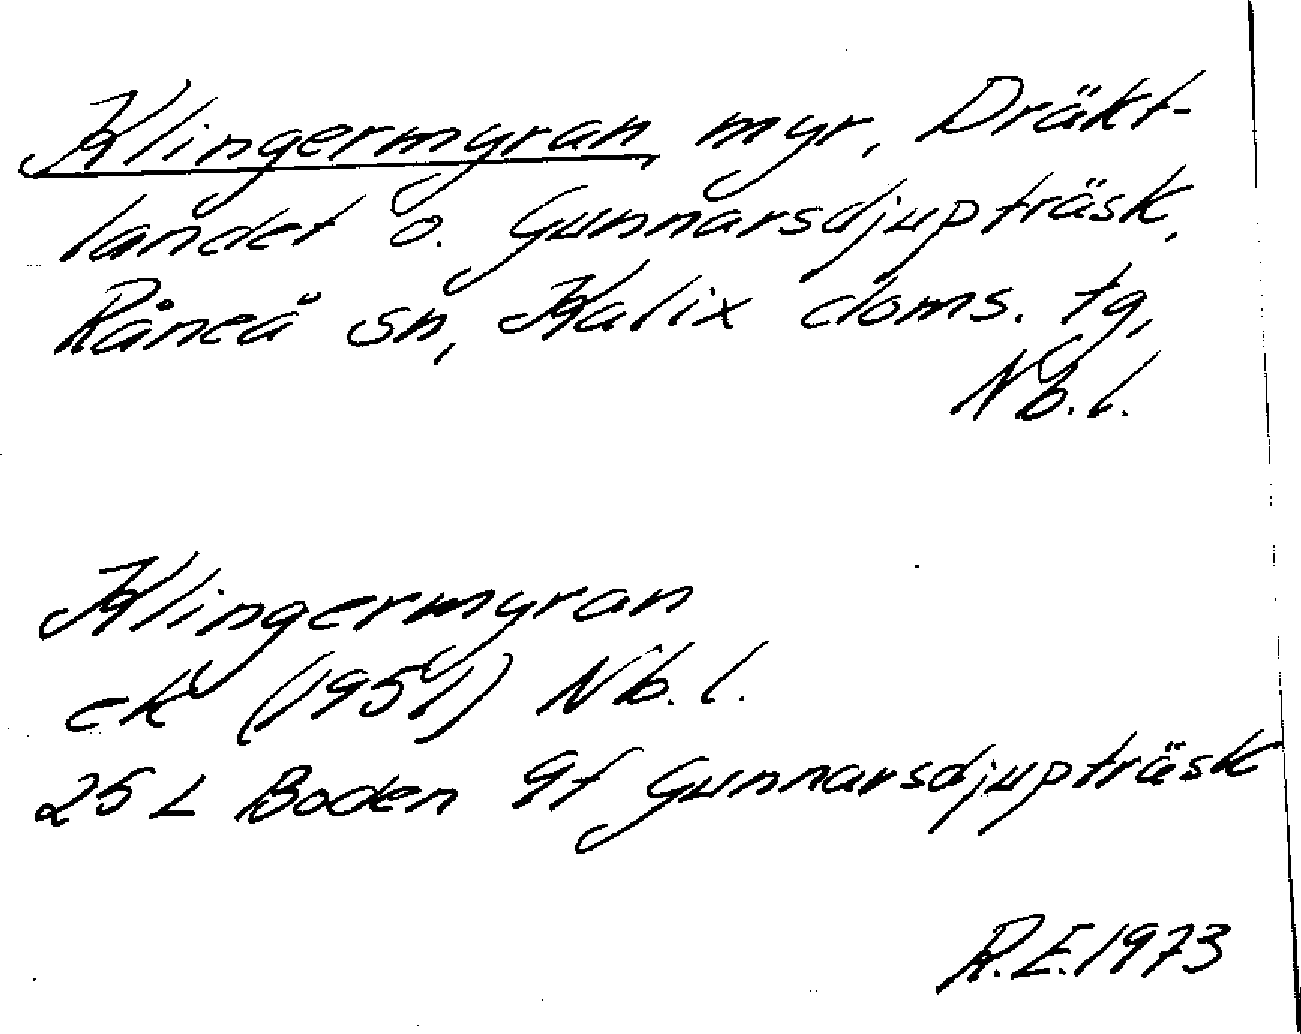 Klingermyran, myr, Dräkt-
landet o. Gunnarsdjupträsk,
Råneå sn, Kalix doms. tg,
Nb.l.
Klingermyran
ek (1951) Nb.l.
25 L Boden 9f Gunnarsdjupträsk
R.E. 1973